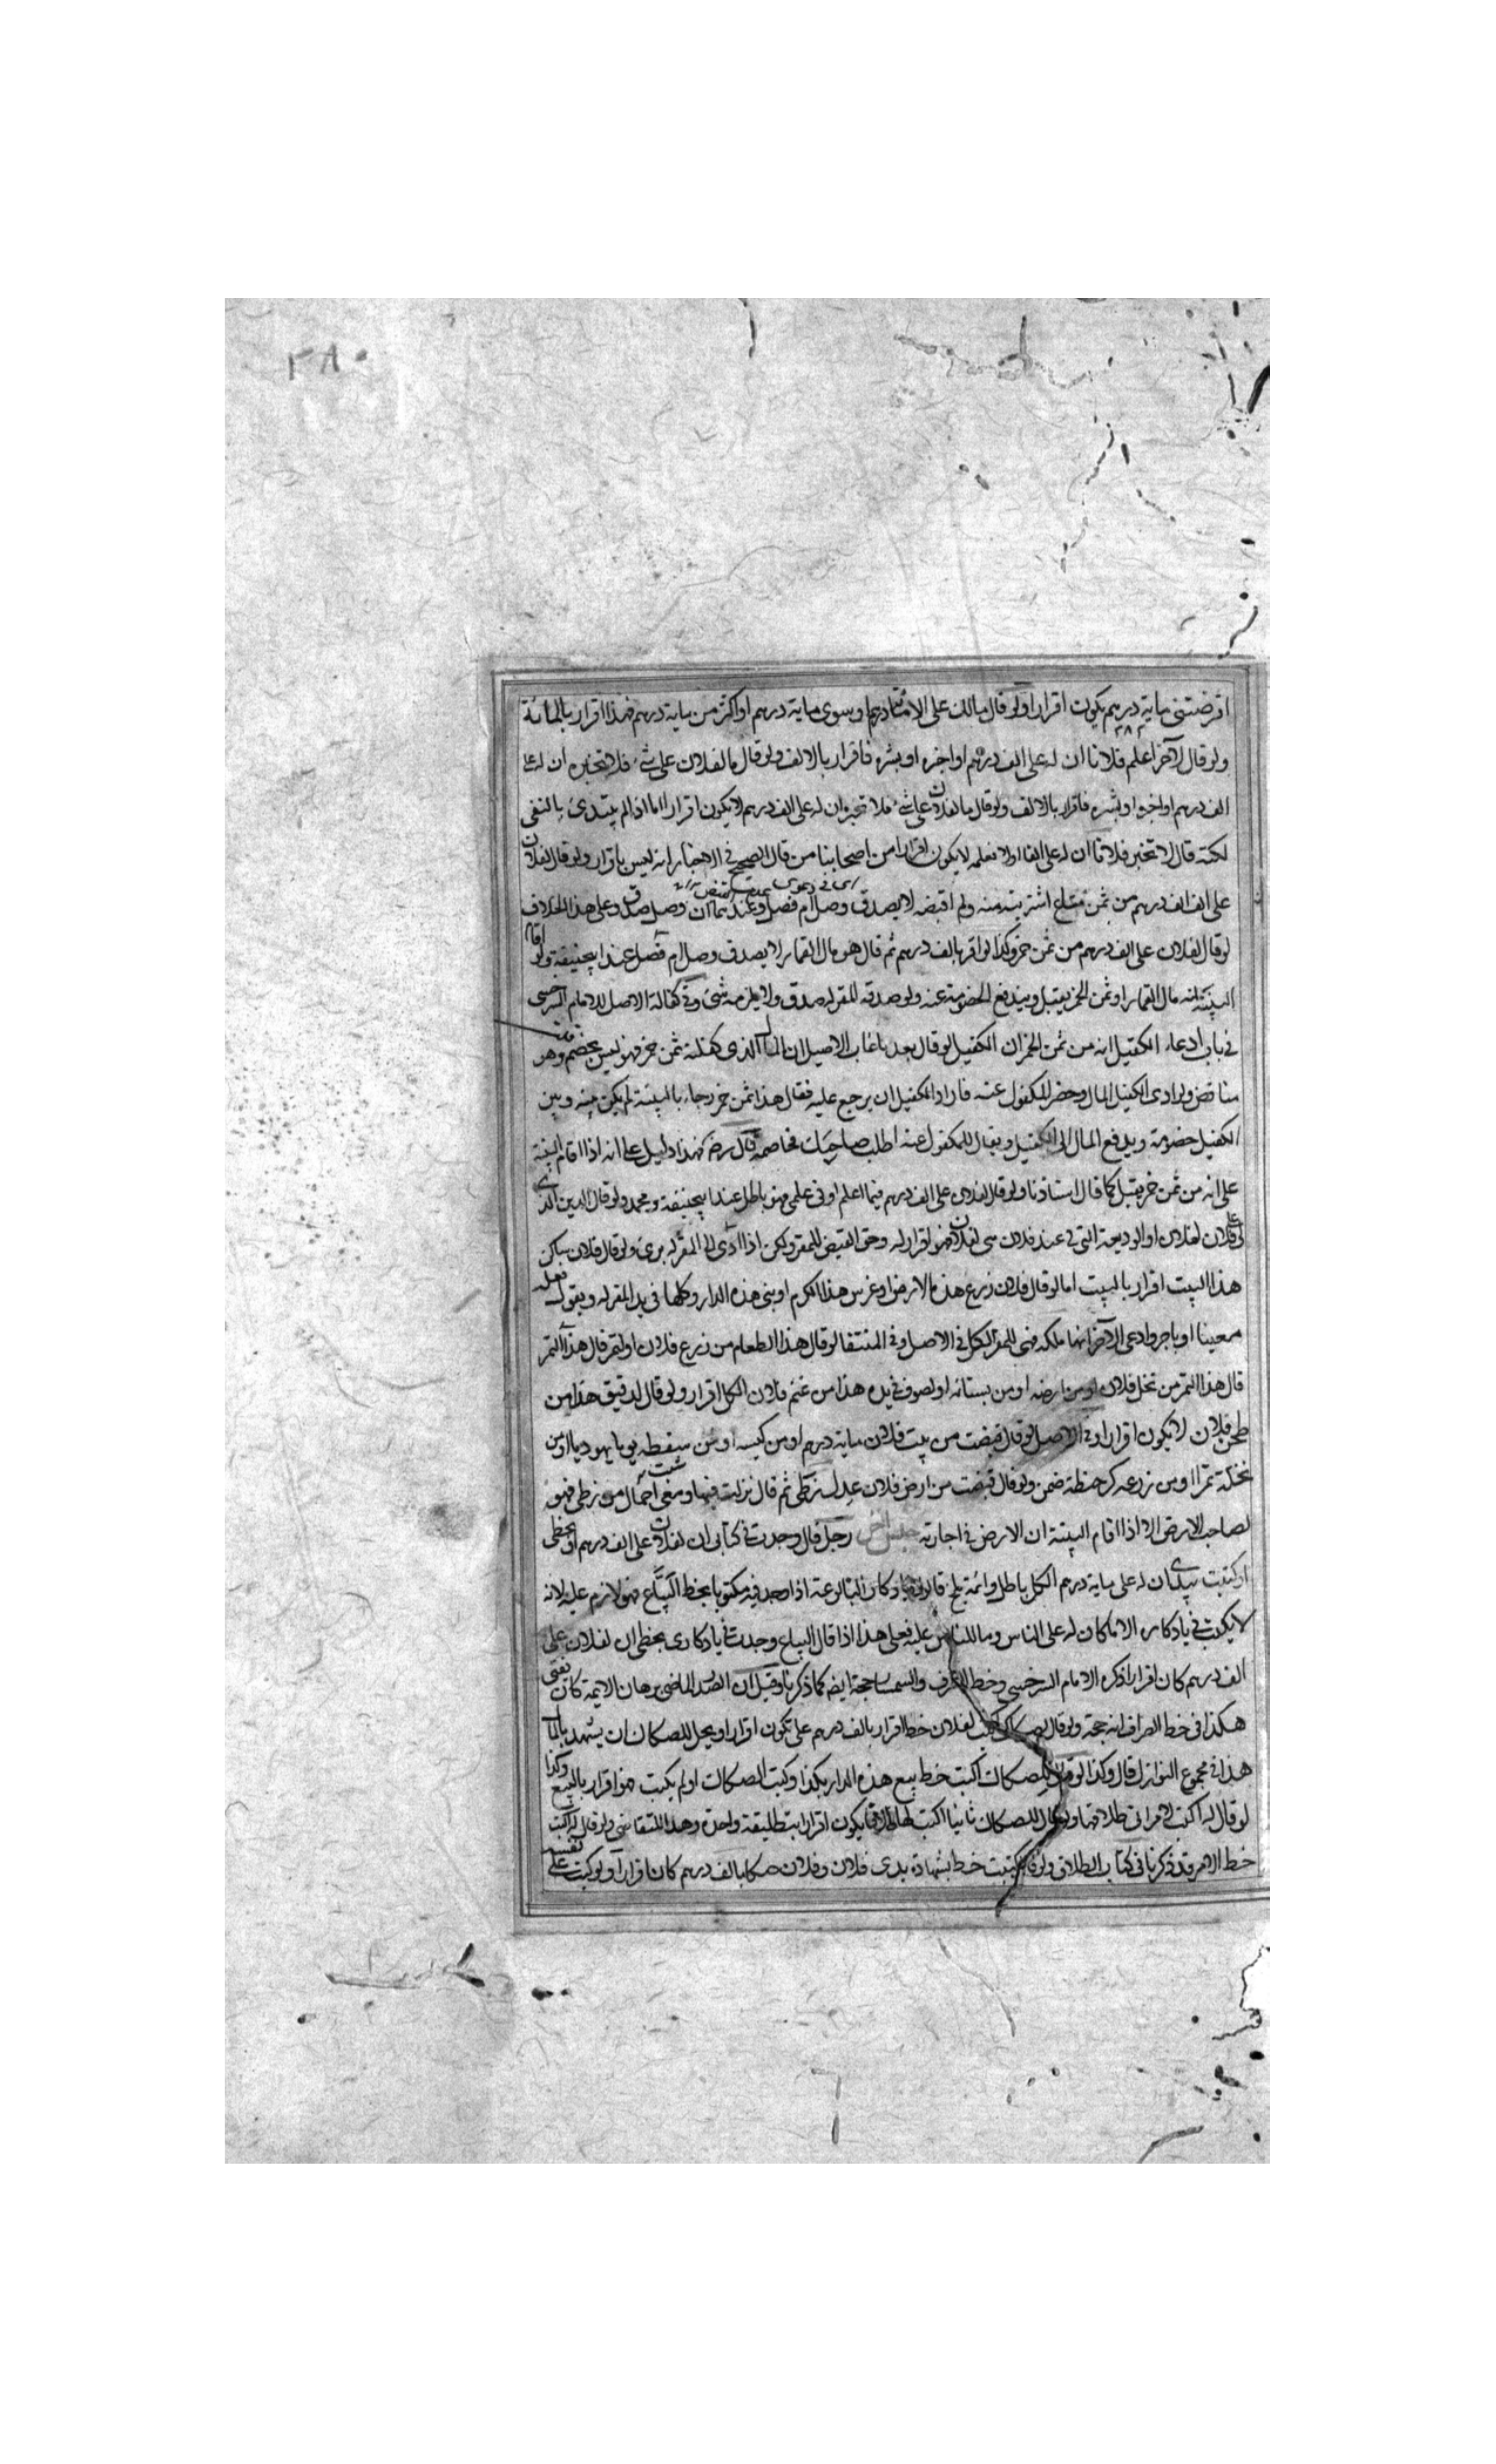 ٢٨٠
اقرضتنى ماية درهم يكون اقرارا ولو قال مالك على الا مائة درهم او سوى ماية درهم او اكثر من ماية درهم فهذا اقرار بالمائة
٢٨٢
ولو قال لآخر اعلم فلانا ان له على الف درهم او اخبره او بشره فاقرار بالالف ولو قال ما لفلان على شئ فلا تخبره ان له على
الف درهم او اخبره او بشره فاقرار بالالف ولو قال ما لفلان على شئ فلا تخبره ان له على الف درهم لا يكون اقرارا اما اذا لم يبتدئ بالنفى
لكنه قال لا تخبر فلانا ان له على الفا او لا تعلمه لا يكون اقرارا من اصحابنا من قال الصحيح في الاخبار انه ليس باقرار ولو قال لفلان
على الف درهم من ثمن متاع اشتريته منه ولم اقبضه لا يصدق وصل ام فصل وعندهما ان وصل صدق وعلى هذا الخلاف
لو قال لفلان على الف درهم من ثمن خمر وكذا لو اقر بالف درهم ثم قال هو مال القمار لا يصدق وصل ام فصل عند ابيحنيفة ولو اقام
البينة انه مال القمار او ثمن الخمر يقبل ويندفع الخصومة عنه ولو صدقه المقر له صدق ولا يلزمه شئ وفي كفالة الاصل للامام السرخسى
في باب ادعاء الكفيل انه من ثمن الخمر ان الكفيل لو قال بعد ما غاب الاصيل ان المال الذى كفلته ثمن خمر فهو ليس بخصم وهو
مناقض ولو ادى الكفيل المال وحضر المكفول عنه فاراد الكفيل ان يرجع عليه فقال هذا ثمن خمر وجاء بالبينة لم يكن بينه وبين
الكفيل خصومة ويدفع المال الى الكفيل ويقال للمكفول عنه اطلب صاحبك فخاصمه قال رضه فهذا دليل على انه اذا اقام البينة
على انه من ثمن خمر يقبل كما قال استاذنا ولو قال لفلان على الف درهم فيما اعلم او في علمى فهو باطل عند ابيحنيفة ومحمد ولو قال الدين الذى
لى على فلان لفلان او الوديعة التى لى عند فلان هى لفلان فهو اقرار له وحق القبض للمقر ولكن اذا ادى الى المقر له برئ ولو قال فلان ساكن
هذا البيت اقرار بالبيت اما لو قال فلان زرع هذه الارض او غرس هذا الكرم او بنى هذه الدار وكلها في يد المقر له ويقول فعله
معينا او باجر وادعى الآخر انها ملكه فهى للمقر الكل في الاصل وفي المنتقا لو قال هذا الطعام من زرع فلان او لتمر قال هذا التمر
قال هذا التمر من نخل فلان او من ارضه او من بستانه او لصوف في يده هذا من غنم فلان الكل اقرار ولو قال لدقيق هذا من
طحن فلان لا يكون اقرارا وفي الاصل لو قال قبضت من بيت فلان ماية درهم او من كيسه او من سفطه ثوبا يهوديا او من
نخلته تمرا او من زرعه كر حنطة ضمن ولو قال قبضت من ارض فلان عدل زطى ثم قال نزلت فيها ومعى احمال من زطى فهو
لصاحب الارض الا اذا اقام البينة ان الارض في اجارته رجل قال وجدت في كتابى ان لفلان على الف درهم او بخطى
او كتبت بيدى ان له على ماية درهم الكل باطل وائمة بلخ قالوا في يادكار البياع عنه اذا وجد فيه مكتوبا بخط البياع فهو لازم عليه لانه
لا يكتب في يادكاره الا ما كان له على الناس وما للناس عليه فعلى هذا اذا قال البياع وجدت في يادكارى بخطى ان لفلان على
الف درهم كان اقرارا ذكره الامام السرخسى وخط الصراف والسمسار حجة ايضه كما ذكرنا وقيل ان الصدر الماضى برهان الايمة كان يفتى
هكذا في خط الصراف انه حجة ولو قال للصكاك اكتب لفلان خط اقرار بالف درهم على يكون اقرارا ويحل للصكاك ان يشهد بالمال
هذا في مجموع النوازل قال وكذا لو قال للصكاك اكتب خط بيع هذه الدار بكذا وكتب الصكاك او لم يكتب فهو اقرار بالبيع وكذا
لو قال له اكتب لامراتى طلاقها ولو قال للصكاك ثانيا اكتب لها طلاقا يكون اقرارا بتطليقة واحدة وهذا للتقاضى ولو قال له اكتب
خط الامر قد ذكرنا في كتاب الطلاق ولو كتبت خط بشهادة يدى فلان وفلان صكا بالف درهم كان اقرارا ولو كتب على نفسه